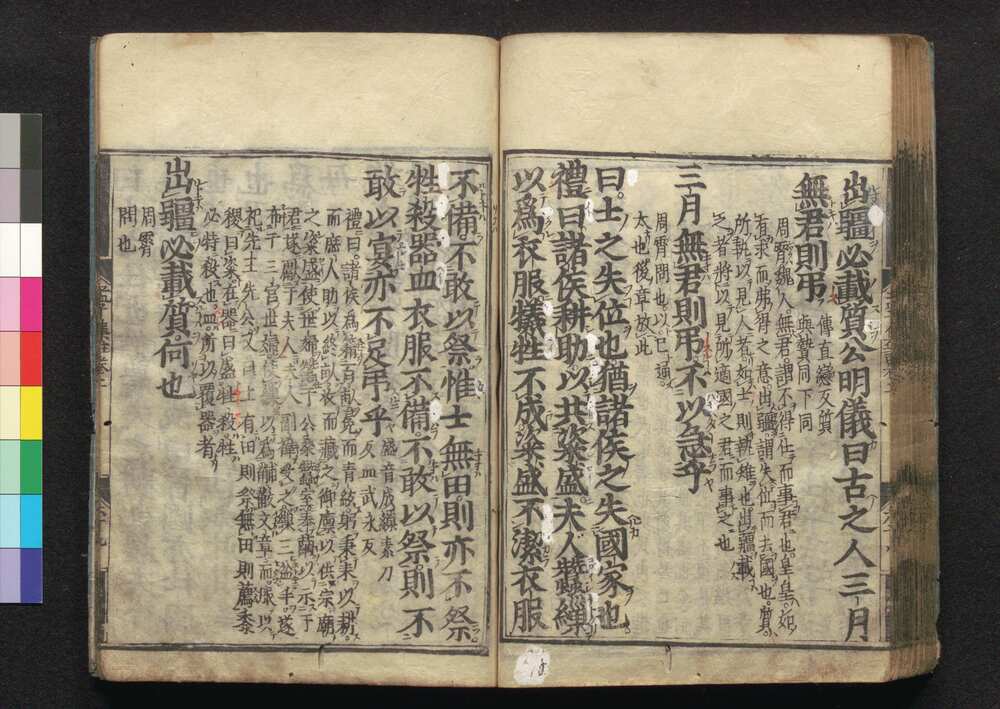 出疆必載質公明儀曰古之人三月
無君則弔
傳直戀反質
與贄同下同
周霄魏人無君謂不得仕而事君也皇皇如
有求而弗得之意出疆謂失位而去國也質
所執以見人者如士則執雉也出疆載
之者將以見所適國之君而事之也
三月無君則弔不以急乎
周霄問也以已通
太也後章放此
曰士之失位也猶諸侯之失國家也
禮曰諸侯耕助以共粢盛夫人蠶繅
以爲衣服犧牲不成粢盛不潔衣服
不備不敢以祭惟士無田則亦不祭
牲殺器皿衣服不備不敢以祭則不
敢以宴亦不足弔乎
盛音成繅素刀
反皿武永反
禮曰諸侯爲藉百畝冕而青紘躬秉耒以耕
而庶人助以終畝收而藏之御廩以供宗廟
之粢盛使世婦蠶于公桑蠶室奉繭以示于
君遂獻于夫人夫人副褘受之繅三盆手遂
布于三宮世婦使繅以爲黼黻文章而服以
祀先王先公又曰士有田則祭無田則薦黍
稷曰粢在器曰盛牲殺牲
必特殺也皿所以覆器者
出疆必載質何也
周霄
問也